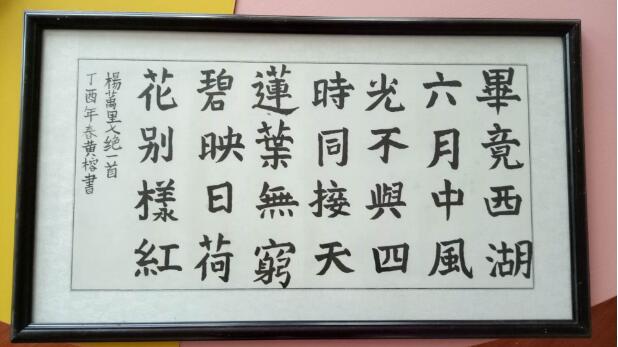 畢竟西湖
六月中風
光不與四
時同接天
蓮葉無窮
碧映日荷
花别樣紅
楊萬里七绝一首
丁酉年春黄榕書